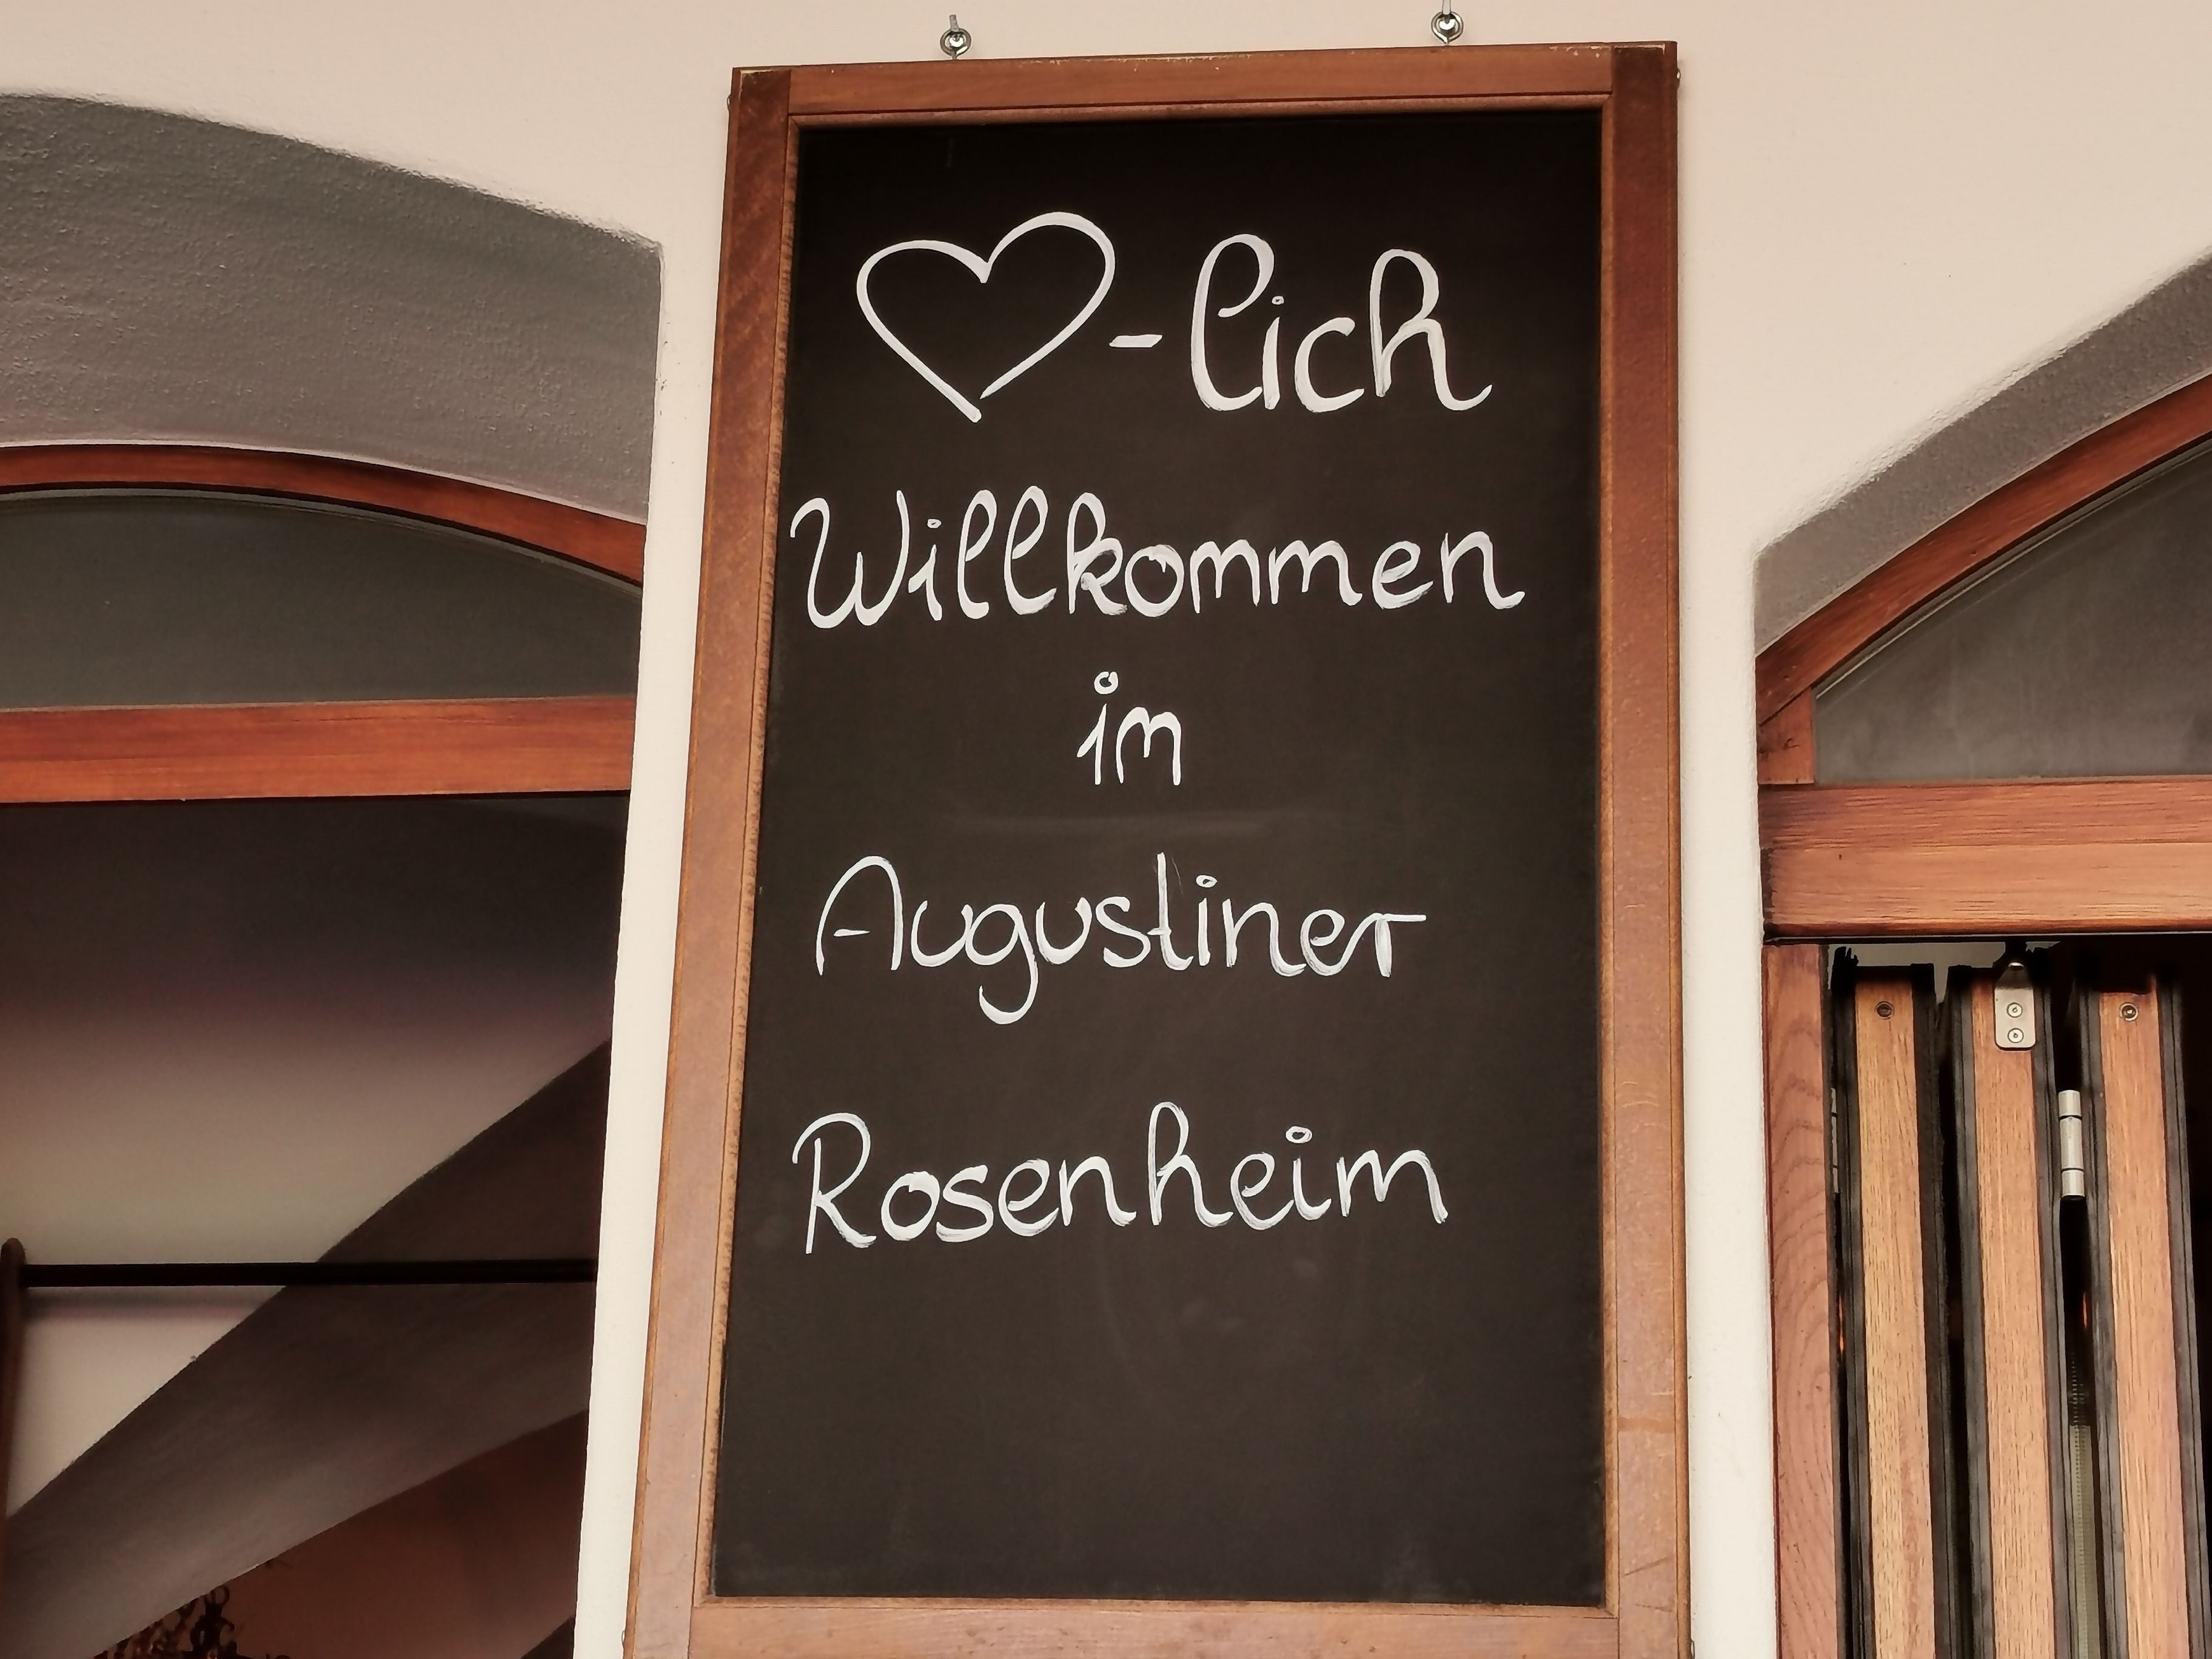 ♡-lich
Willkommen
im
Augustiner
Rosenheim